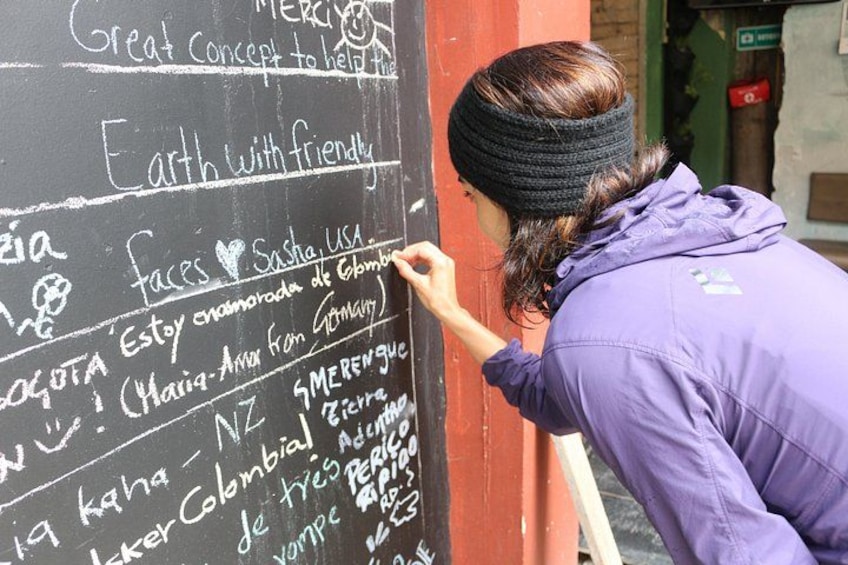 MERCI
Great concept to help the
Earth with friendly
faces Sasha, USA
Estoy enamorada de Colombia
BOGOTÁ! (Maria-Amor from Germany)
kaha - NZ
Colombia!
de tres
rompe
MERENGUE
Tierra
Adentro
PERICO
RIPIAO
RD.